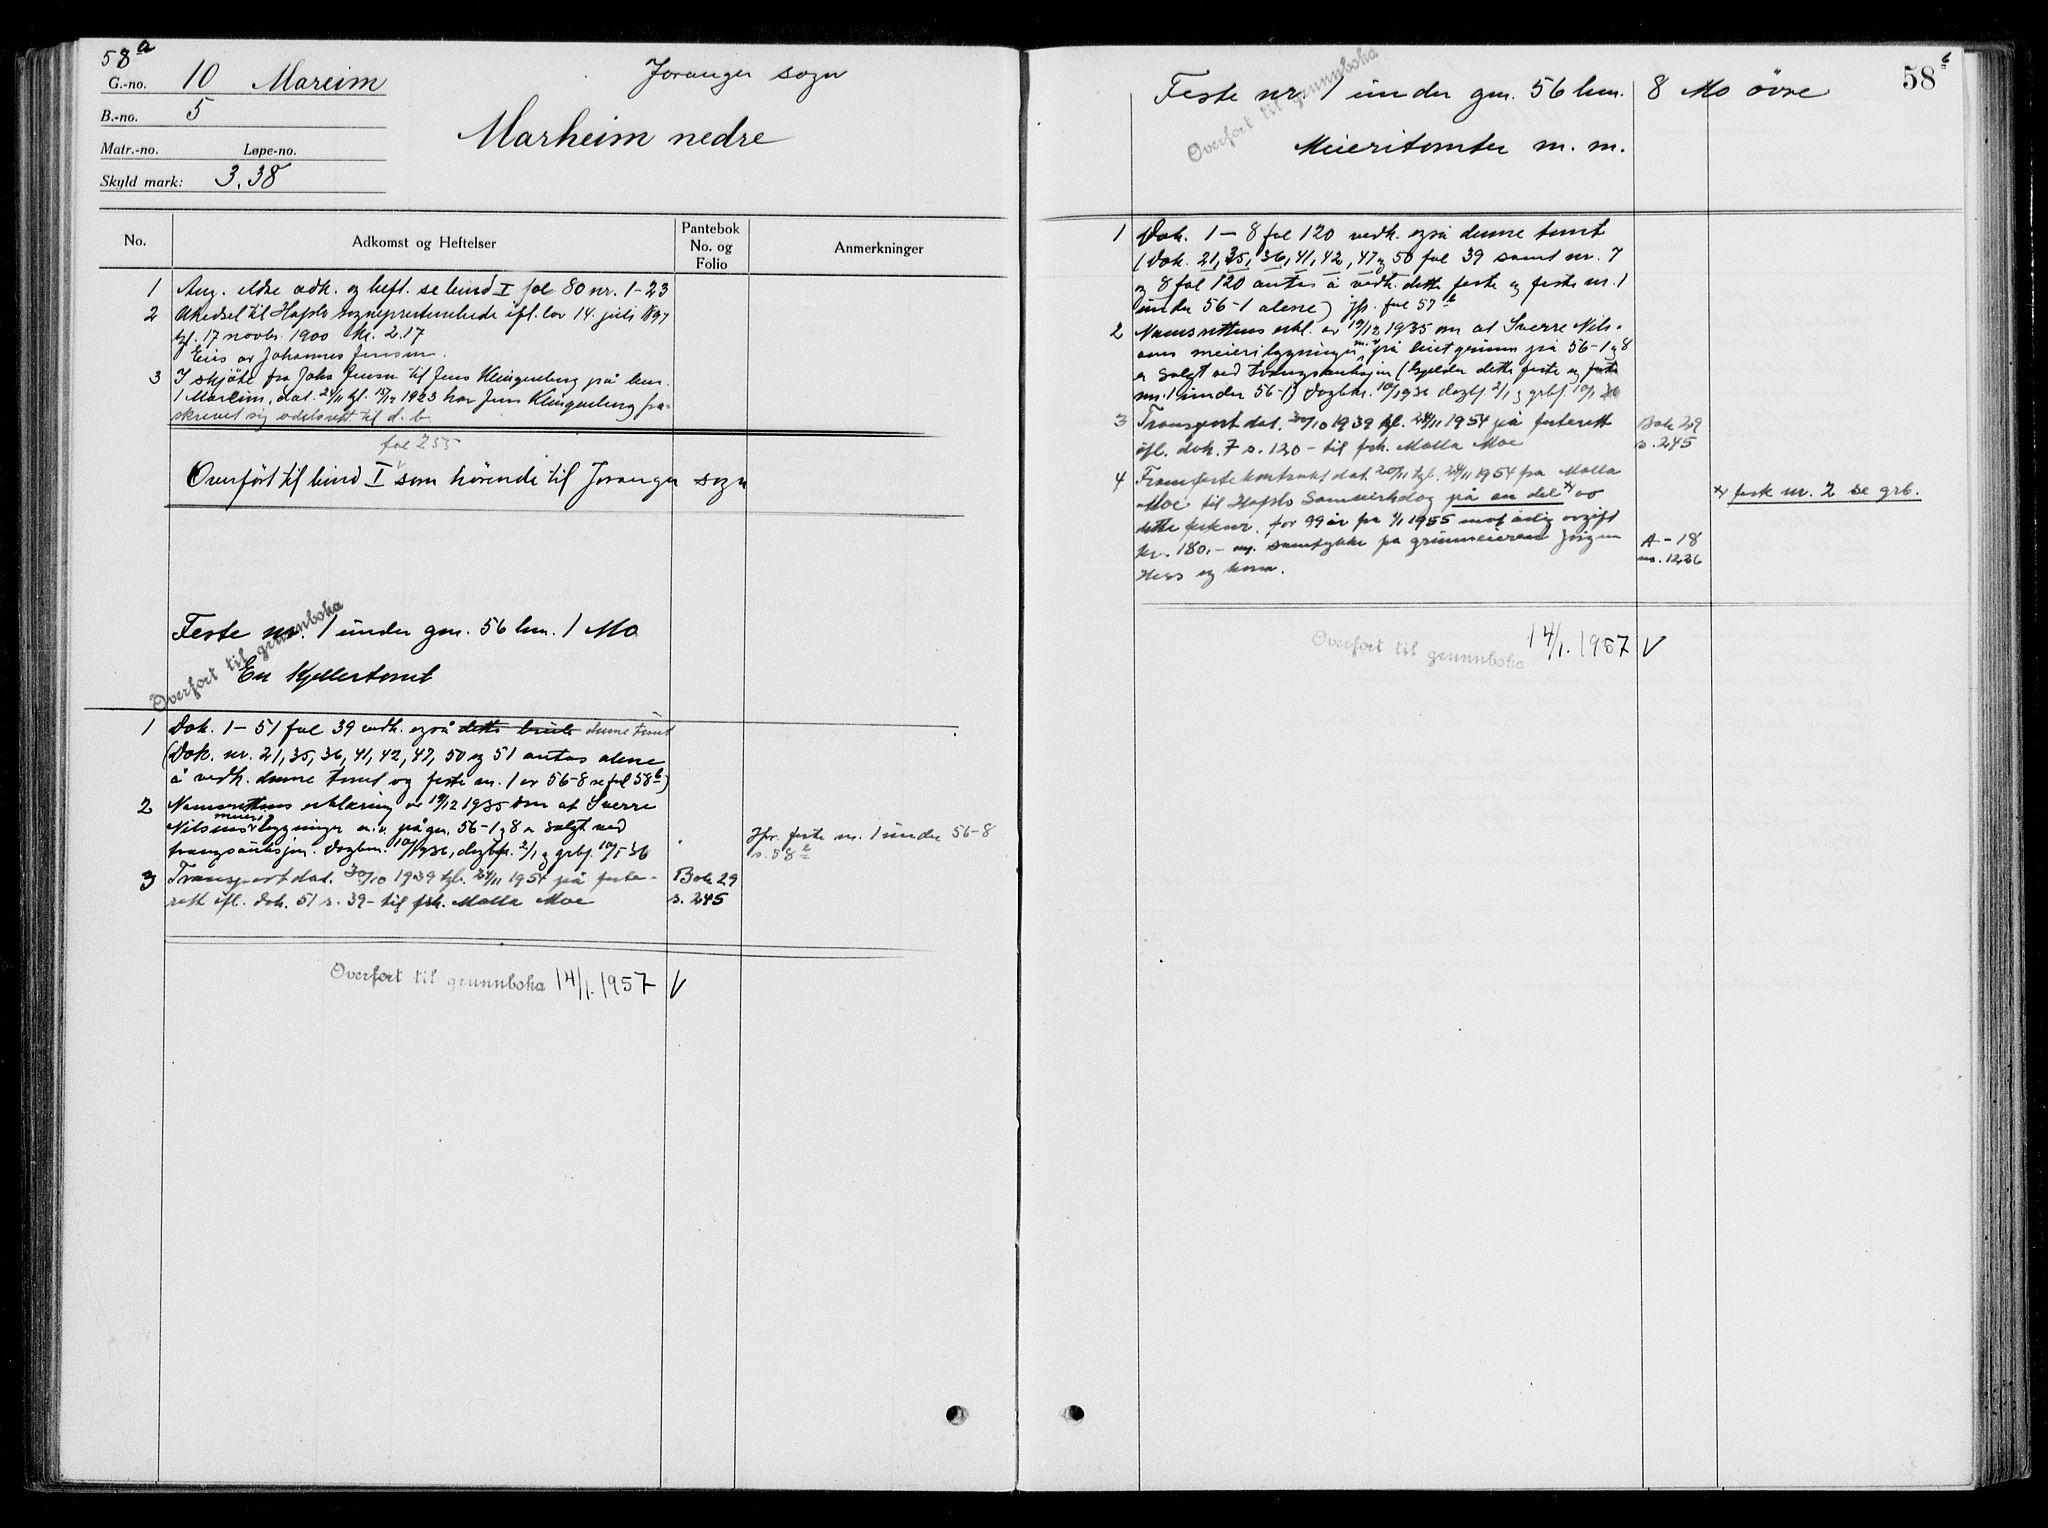 58a
G.-no. 10 Mareim
B.-no. 5
Matr.-no. Løpe-no.
Skyld mark: 3.38
Joranger sogn
Marheim nedre
No.
Adkomst og Heftelser
Pantebok No. og Folio
Anmerkninger
1 Ang. eldre adk. og heft. se bind I fol 80 nr. 1-23
2 Utkedsel til Hafslo sogneprestembede ifl. lov 14. juli 1897
tgl. 17 novbr. 1900 kr. 2.17
Eies av Johannes Jensen.
3 I skjöte fra Johs Jensen til Jens Klingenberg på bnr.
1 Mareim, dat. 21/11 tgl. 15/12 1923 har Jens Klingenberg fra-
skrevet sig odelsrett til d. b
fol 255
Overfört til bind I som hörende til Joranger sogn
Overført til grunnboka
Feste nr. 1 under gnr. 56 bnr. 1 Mo
En Kjellertomt
1 Dok. 1-51 fol 39 vedk. også dette bruk denne tomt
(Dok. nr. 21, 35, 36, 41, 42, 47, 50 og 51 antas alene
å vedk. denne tomt og feste nr. 1 av 56-8 se fol 58b)
2 Namsrettens erklæring av 19/12 1935 om at Sverre
Nilsens meieribygninger m.v. på gnr. 56-1 og 8 er solgt ved
tvangsauksjon. Dagbnr. 10/1936, dagbf. 2/1 og grbf. 10/1 36
Jfr. feste nr. 1 under 56-8
s. 58b
3 Transport dat. 30/10 1939 tgl. 24/11 1954 på feste-
rett ifl. dok. 51 s. 39 - til frk. Malla Moe
Bok 29
s. 245
Overført til grunnboka 14/1. 1957 V
58b
Overført til grunnboka
Feste nr. 1 under gnr. 56 bnr. 8 Mo övre
Meieritomter m. m.
1 Dok. 1-8 fol 120 vedk. også denne tomt
(Dok. 21, 35, 36, 41, 42, 47 og 50 fol 39 samt nr. 7
og 8 fol 120 antas å vedk. dette feste og feste nr. 1
under 56-1 alene) jfr. fol 57b
2 Namsrettens erkl. av 19/12 1935 om at Sverre Nils-
ens meieribygninger m.v. på leiet grunn på 56-1 og 8
er solgt ved tvangsauksjon (Gjelder dette feste og feste
nr. 1 under 56-1) Dagbnr. 10/1936 dagbf. 2/1 og grbf. 10/1 36
3 Transport dat. 30/10 1939 tgl. 24/11 1954 på festerett
ifl. dok. 7 s. 120 - til frk. Malla Moe
Bok 29
s. 245
4 Framfestekontrakt dat. 20/11 tgl. 24/11 1954 fra Malla
Moe til Hafslo Samvirkelag på en del x) av
dette festenr. for 99 år fra 1/1 1955 mot årlig avgift
kr. 180.- m. samtykke fra grunneieren Jörgen
Hess og kona.
A-18
nr. 1226
x) feste nr. 2 se grb.
Overført til grunnboka 14/1. 1957 V